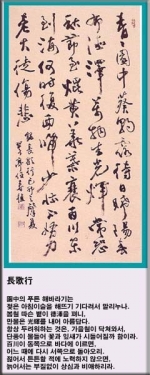 青々園中葵朝露待日晞陽春
布德澤萬物生光輝常恐
秋節至焜黃華葉衰百川東
到海何時復西歸少壯不努力
老大徒傷悲
長歌行
園中의 푸른 해바라기는
젖은 아침이슬을 해뜨기 기다려서 말리누나.
봄철 따슨 볕이 德澤을 펴니,
만물은 光輝를 내며 아름답다.
항상 두려워하는 것은, 가을철이 닥쳐와서,
단풍이 물들어 꽃과 잎새가 시들어질까 함이라.
百川이 동쪽으로 바다에 이르면,
어느 때에 다시 서쪽으로 돌아오리.
젊어서 튼튼할 적에 노력하지 않으면,
늙어서는 부질없이 상심과 비애하리라.